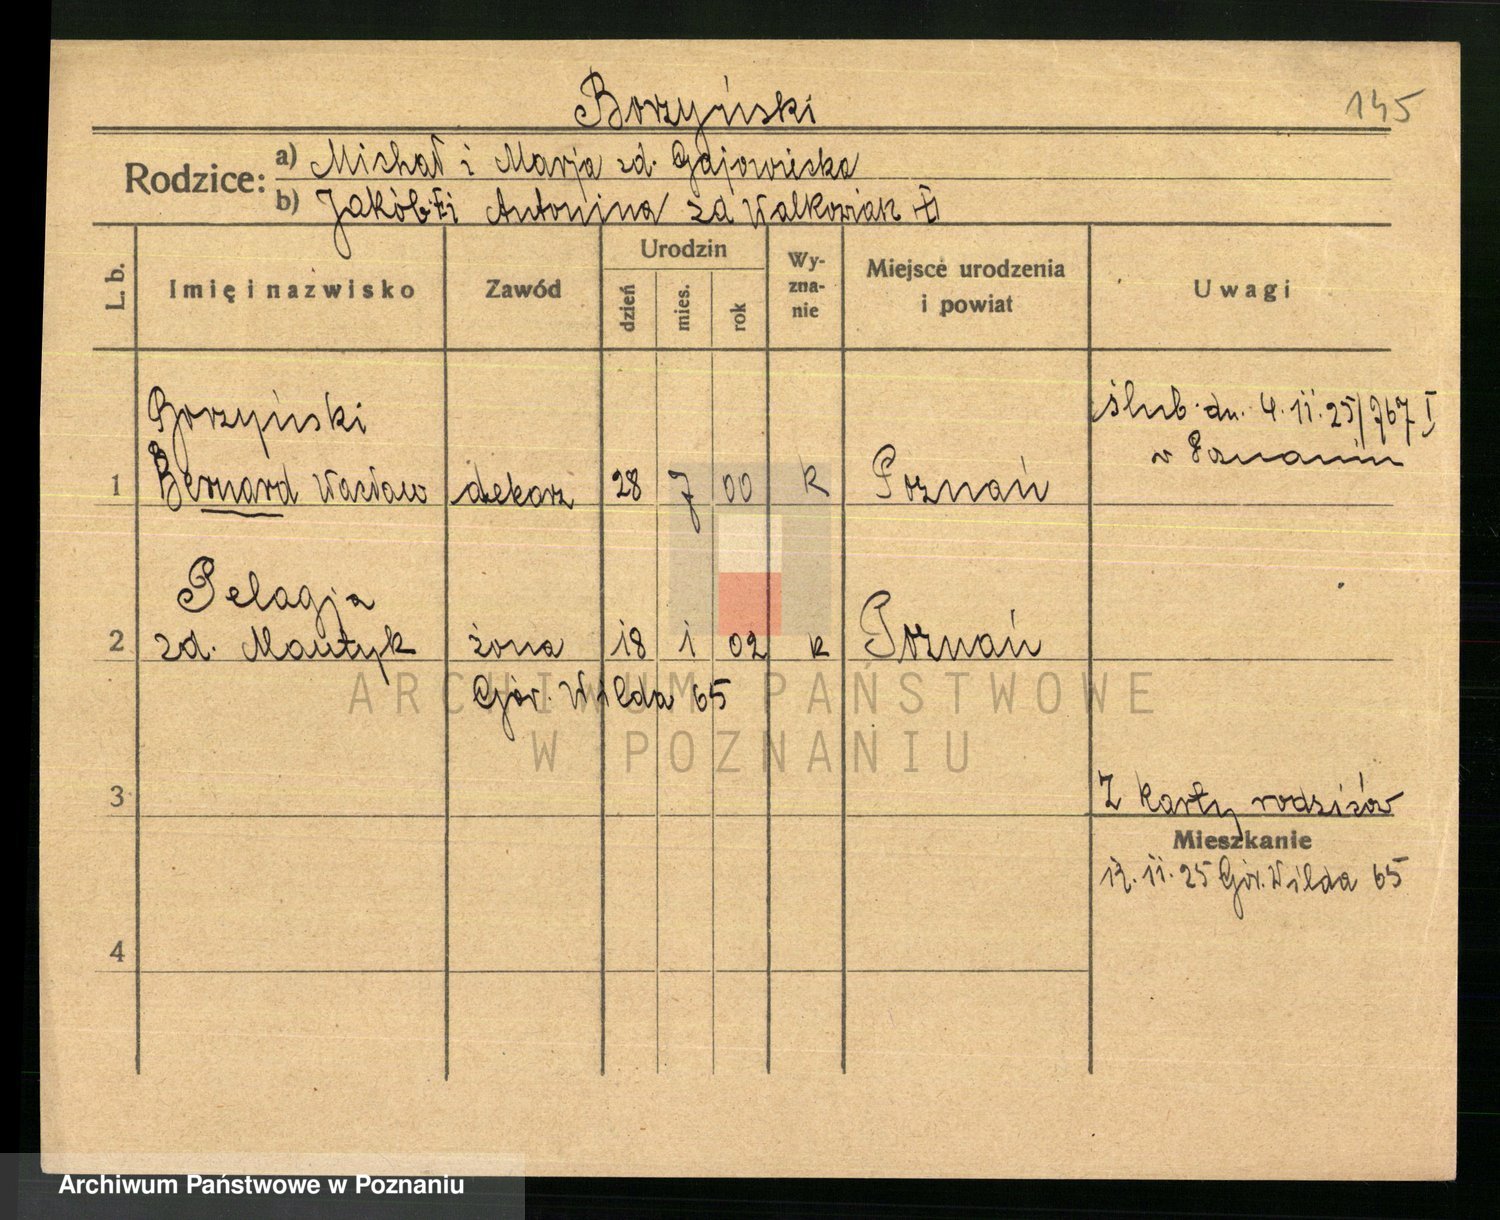 Borzyński
145
Rodzice: a) Michał i Marja zd. Gajowiecka
b) Jakób † i Antonina zd Walkowiak †
L. b.
Imię i nazwisko
Zawód
Urodzin
dzień
mies.
rok
Wy-
zna-
nie
Miejsce urodzenia
i powiat
Uwagi
Borzyński
ślub dn. 4.11.25/767 I
w Poznaniu
1 Bernard Wacław dekarz 28 7 00 k Poznań
Pelagja
2 zd. żona 18 1 02 k Poznań
Gór. Wilda 65
ARCHIWUM PAŃSTWOWE
W POZNANIU
3
Z karty rodziców
Mieszkanie
12.11.25 Gór. Wilda 65
4
Archiwum Państwowe w Poznaniu